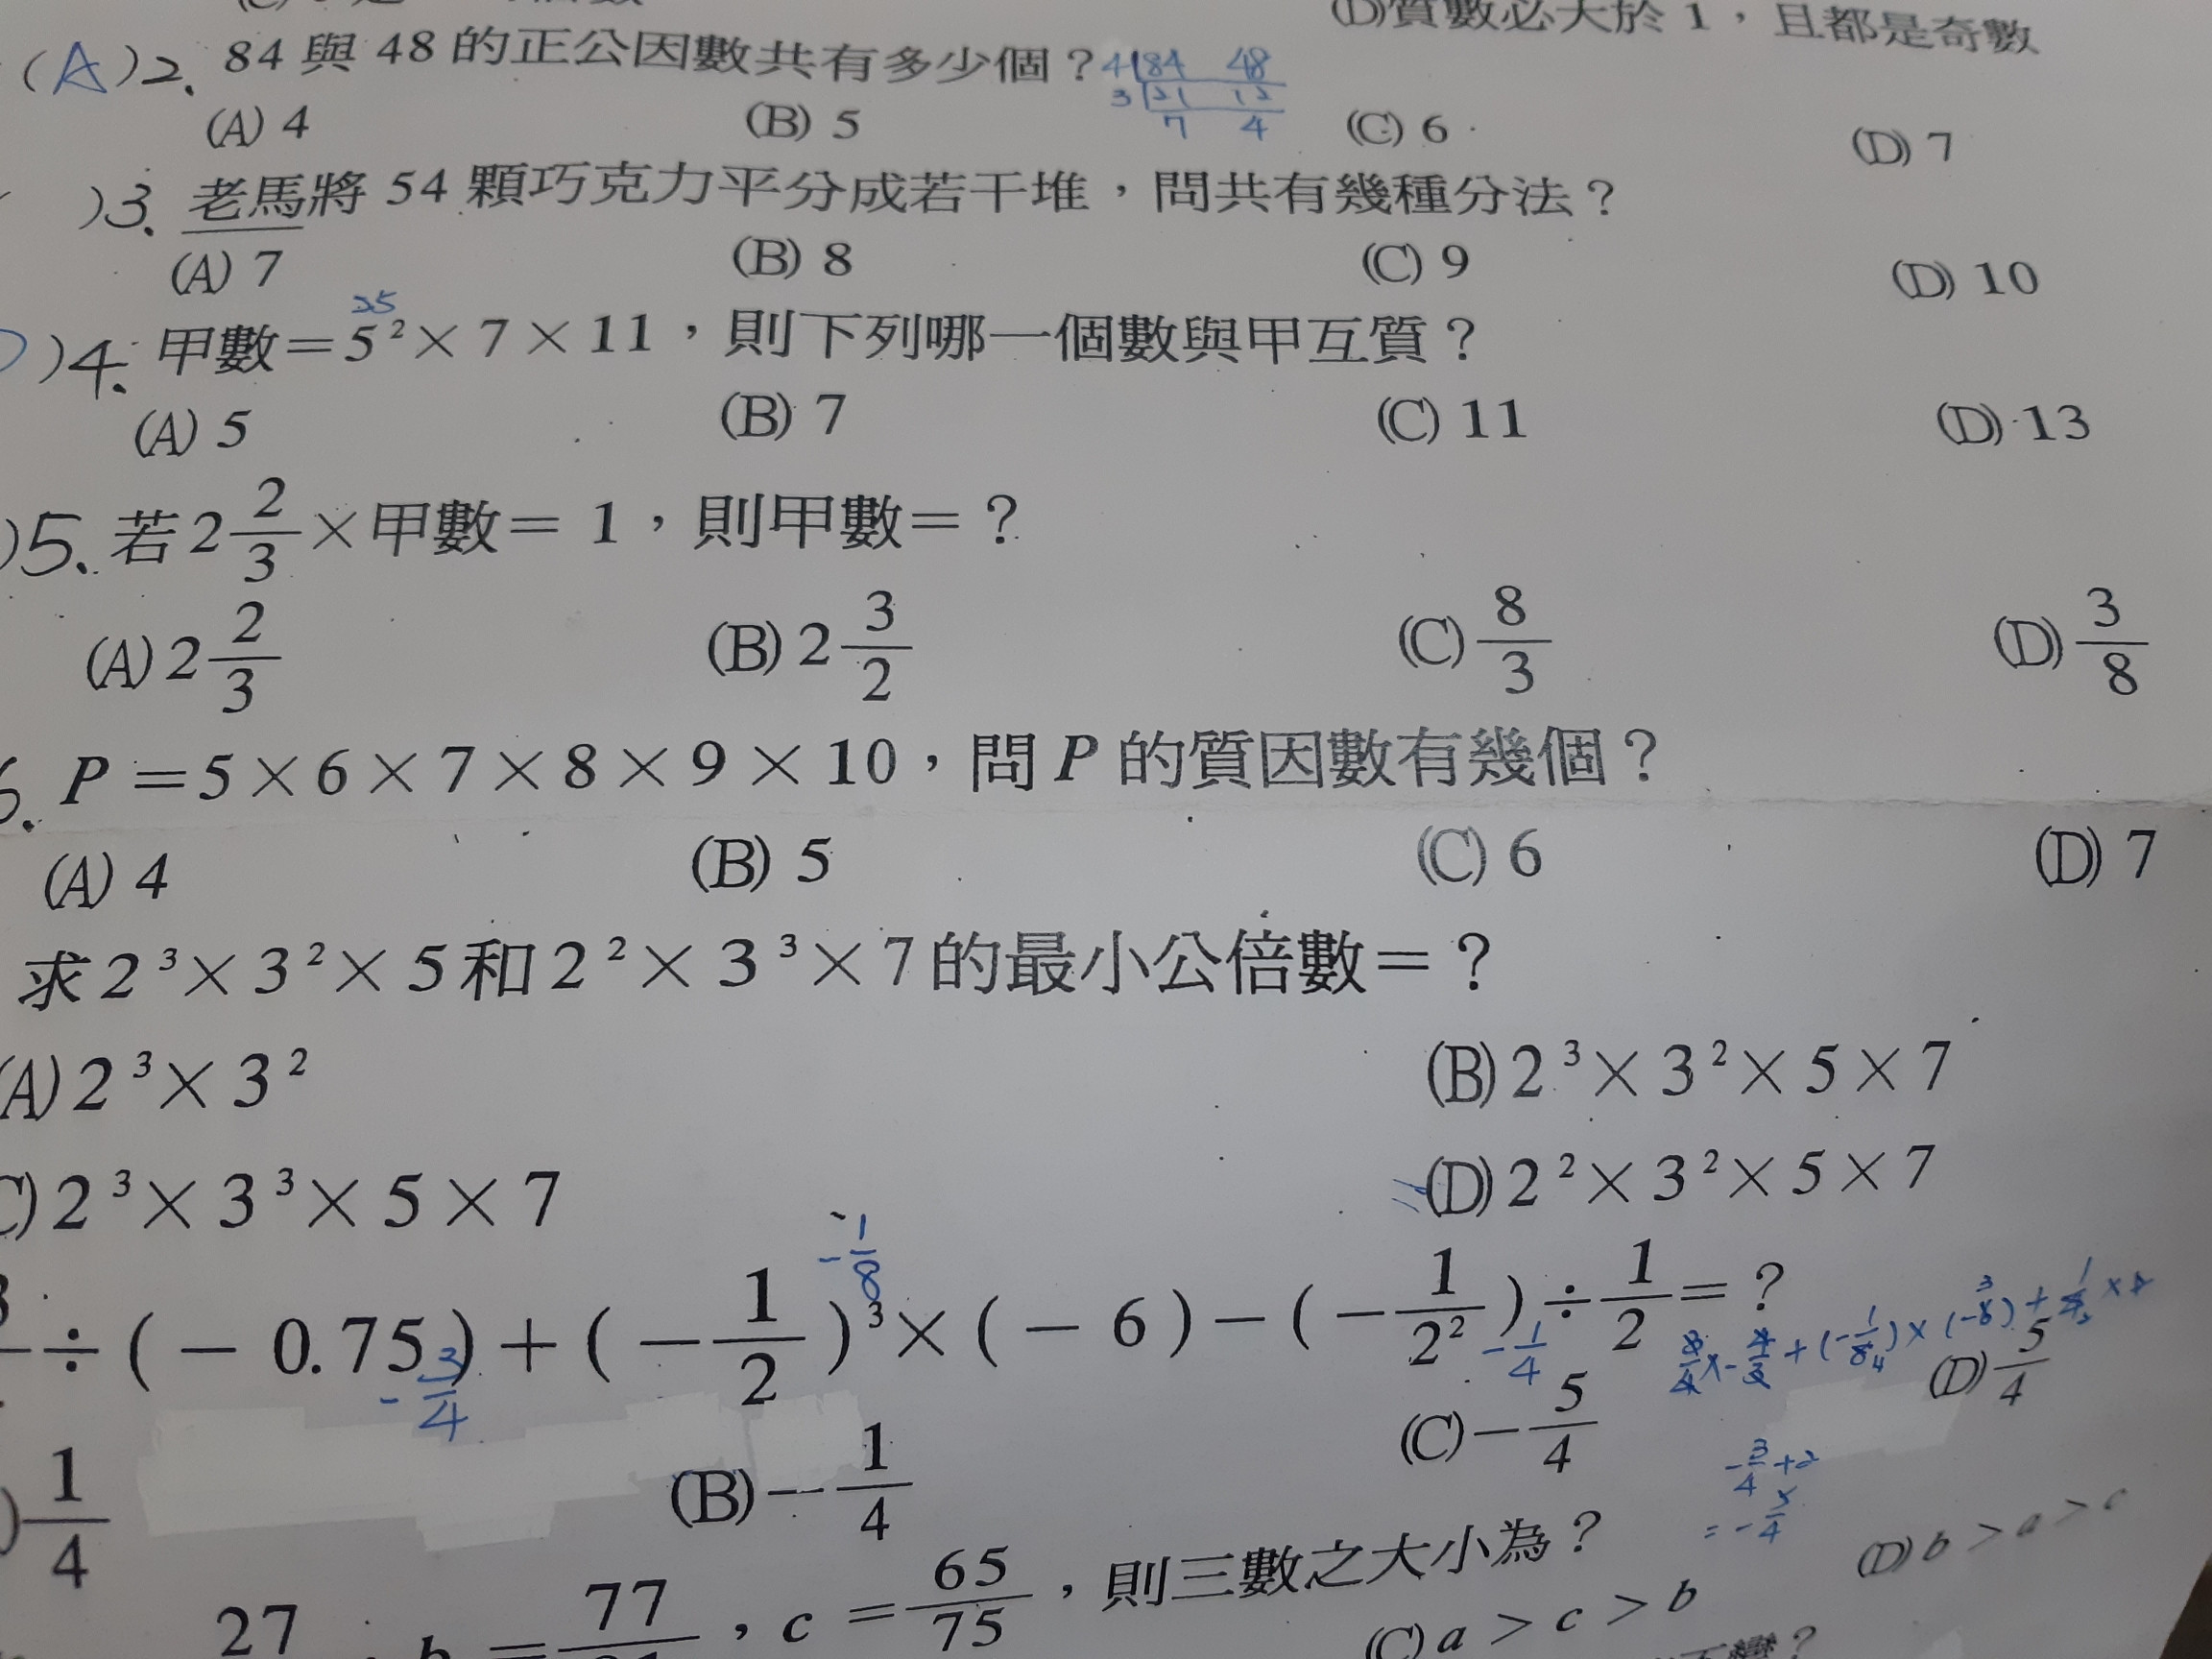 (D)質數必大於 1，且都是奇數
(A)2. 84 與 48 的正公因數共有多少個？
4 84 48
3 21 12
7 4
(A) 4 (B) 5 (C) 6 (D) 7
)3. 老馬將 54 顆巧克力平分成若干堆，問共有幾種分法？
(A) 7 (B) 8 (C) 9 (D) 10
25
)4. 甲數＝5²×7×11，則下列哪一個數與甲互質？
(A) 5 (B) 7 (C) 11 (D) 13
)5. 若 2 2/3 ×甲數＝ 1，則甲數＝？
(A) 2 2/3 (B) 2 3/2 (C) 8/3 (D) 3/8
6. P＝5×6×7×8×9×10，問 P 的質因數有幾個？
(A) 4 (B) 5 (C) 6 (D) 7
求 2³×3²×5 和 2²×3³×7 的最小公倍數＝？
(A) 2³×3² (B) 2³×3²×5×7
(C) 2³×3³×5×7 (D) 2²×3²×5×7
-1/8
÷(－0.75)＋(－1/2)³×(－6)－(－1/2²)÷1/2＝？
-3/4 -1/4
)1/4 (B)－1/4 (C)－5/4 (D)5/4
-3/4+2
=-5/4
27 b＝77 ，c＝65/75，則三數之大小為？
(C) a＞c＞b (D) b＞a＞c